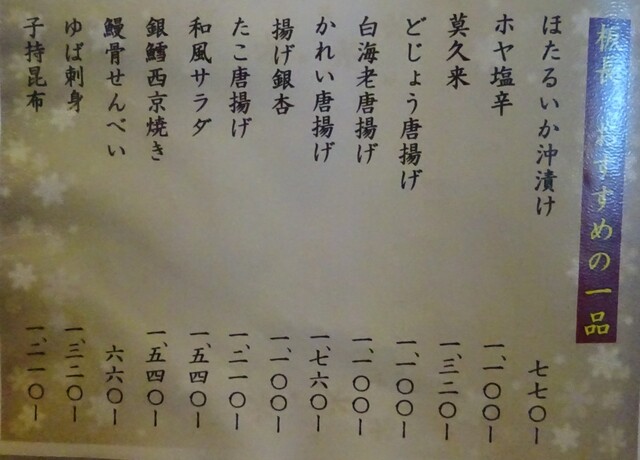 板長のおすすめの一品
ほたるいか沖漬け 七七〇ー
ホヤ塩辛 一、一〇〇ー
莫久来 一、三二〇ー
どじょう唐揚げ 一、一〇〇ー
白海老唐揚げ 一、一〇〇ー
かれい唐揚げ 一、七六〇ー
揚げ銀杏 一、一〇〇ー
たこ唐揚げ 一、二一〇ー
和風サラダ 一、五四〇ー
銀鱈西京焼き 一、五四〇ー
鰻骨せんべい 六六〇ー
ゆば刺身 一、三二〇ー
子持昆布 一、二一〇ー